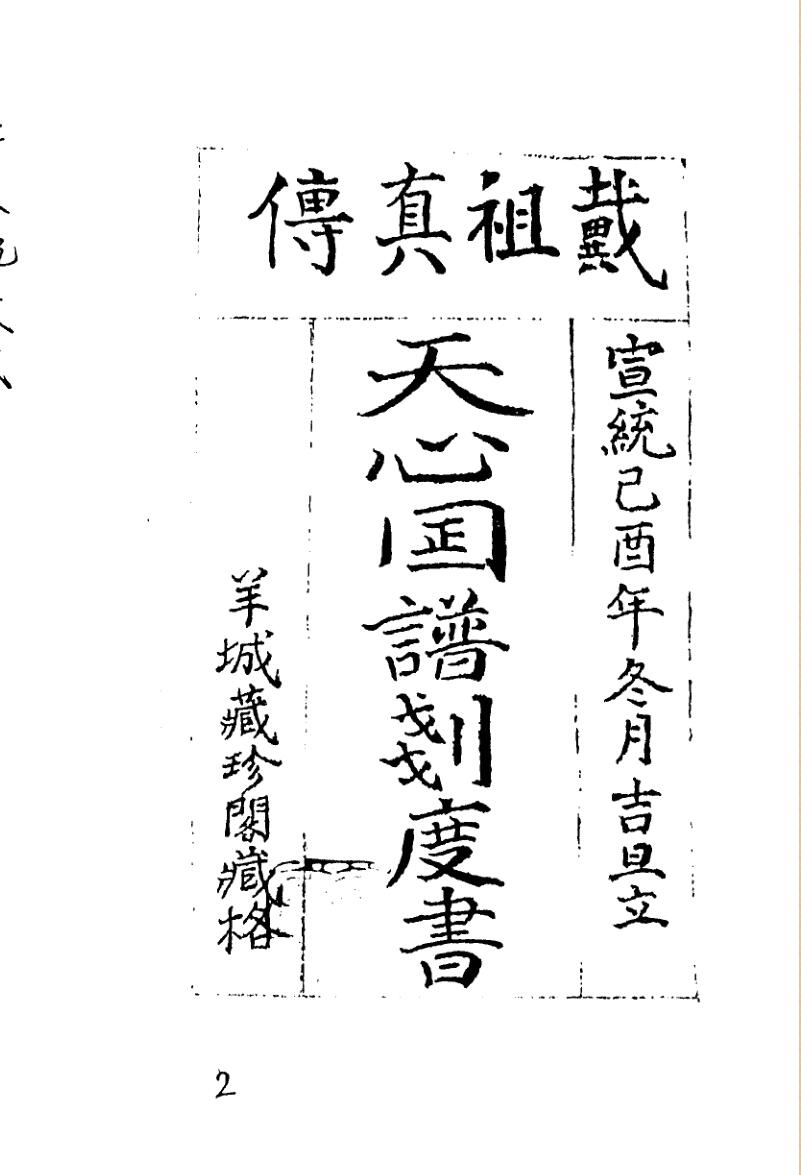 戴祖真傳
宣統己酉年冬月吉旦立
天心譜剗度書
羊城藏珍閣藏格
2